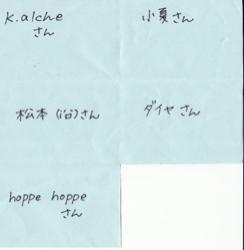 k.alche
さん
小夏さん
松本(治)さん
ダイヤさん
hoppe hoppe
さん